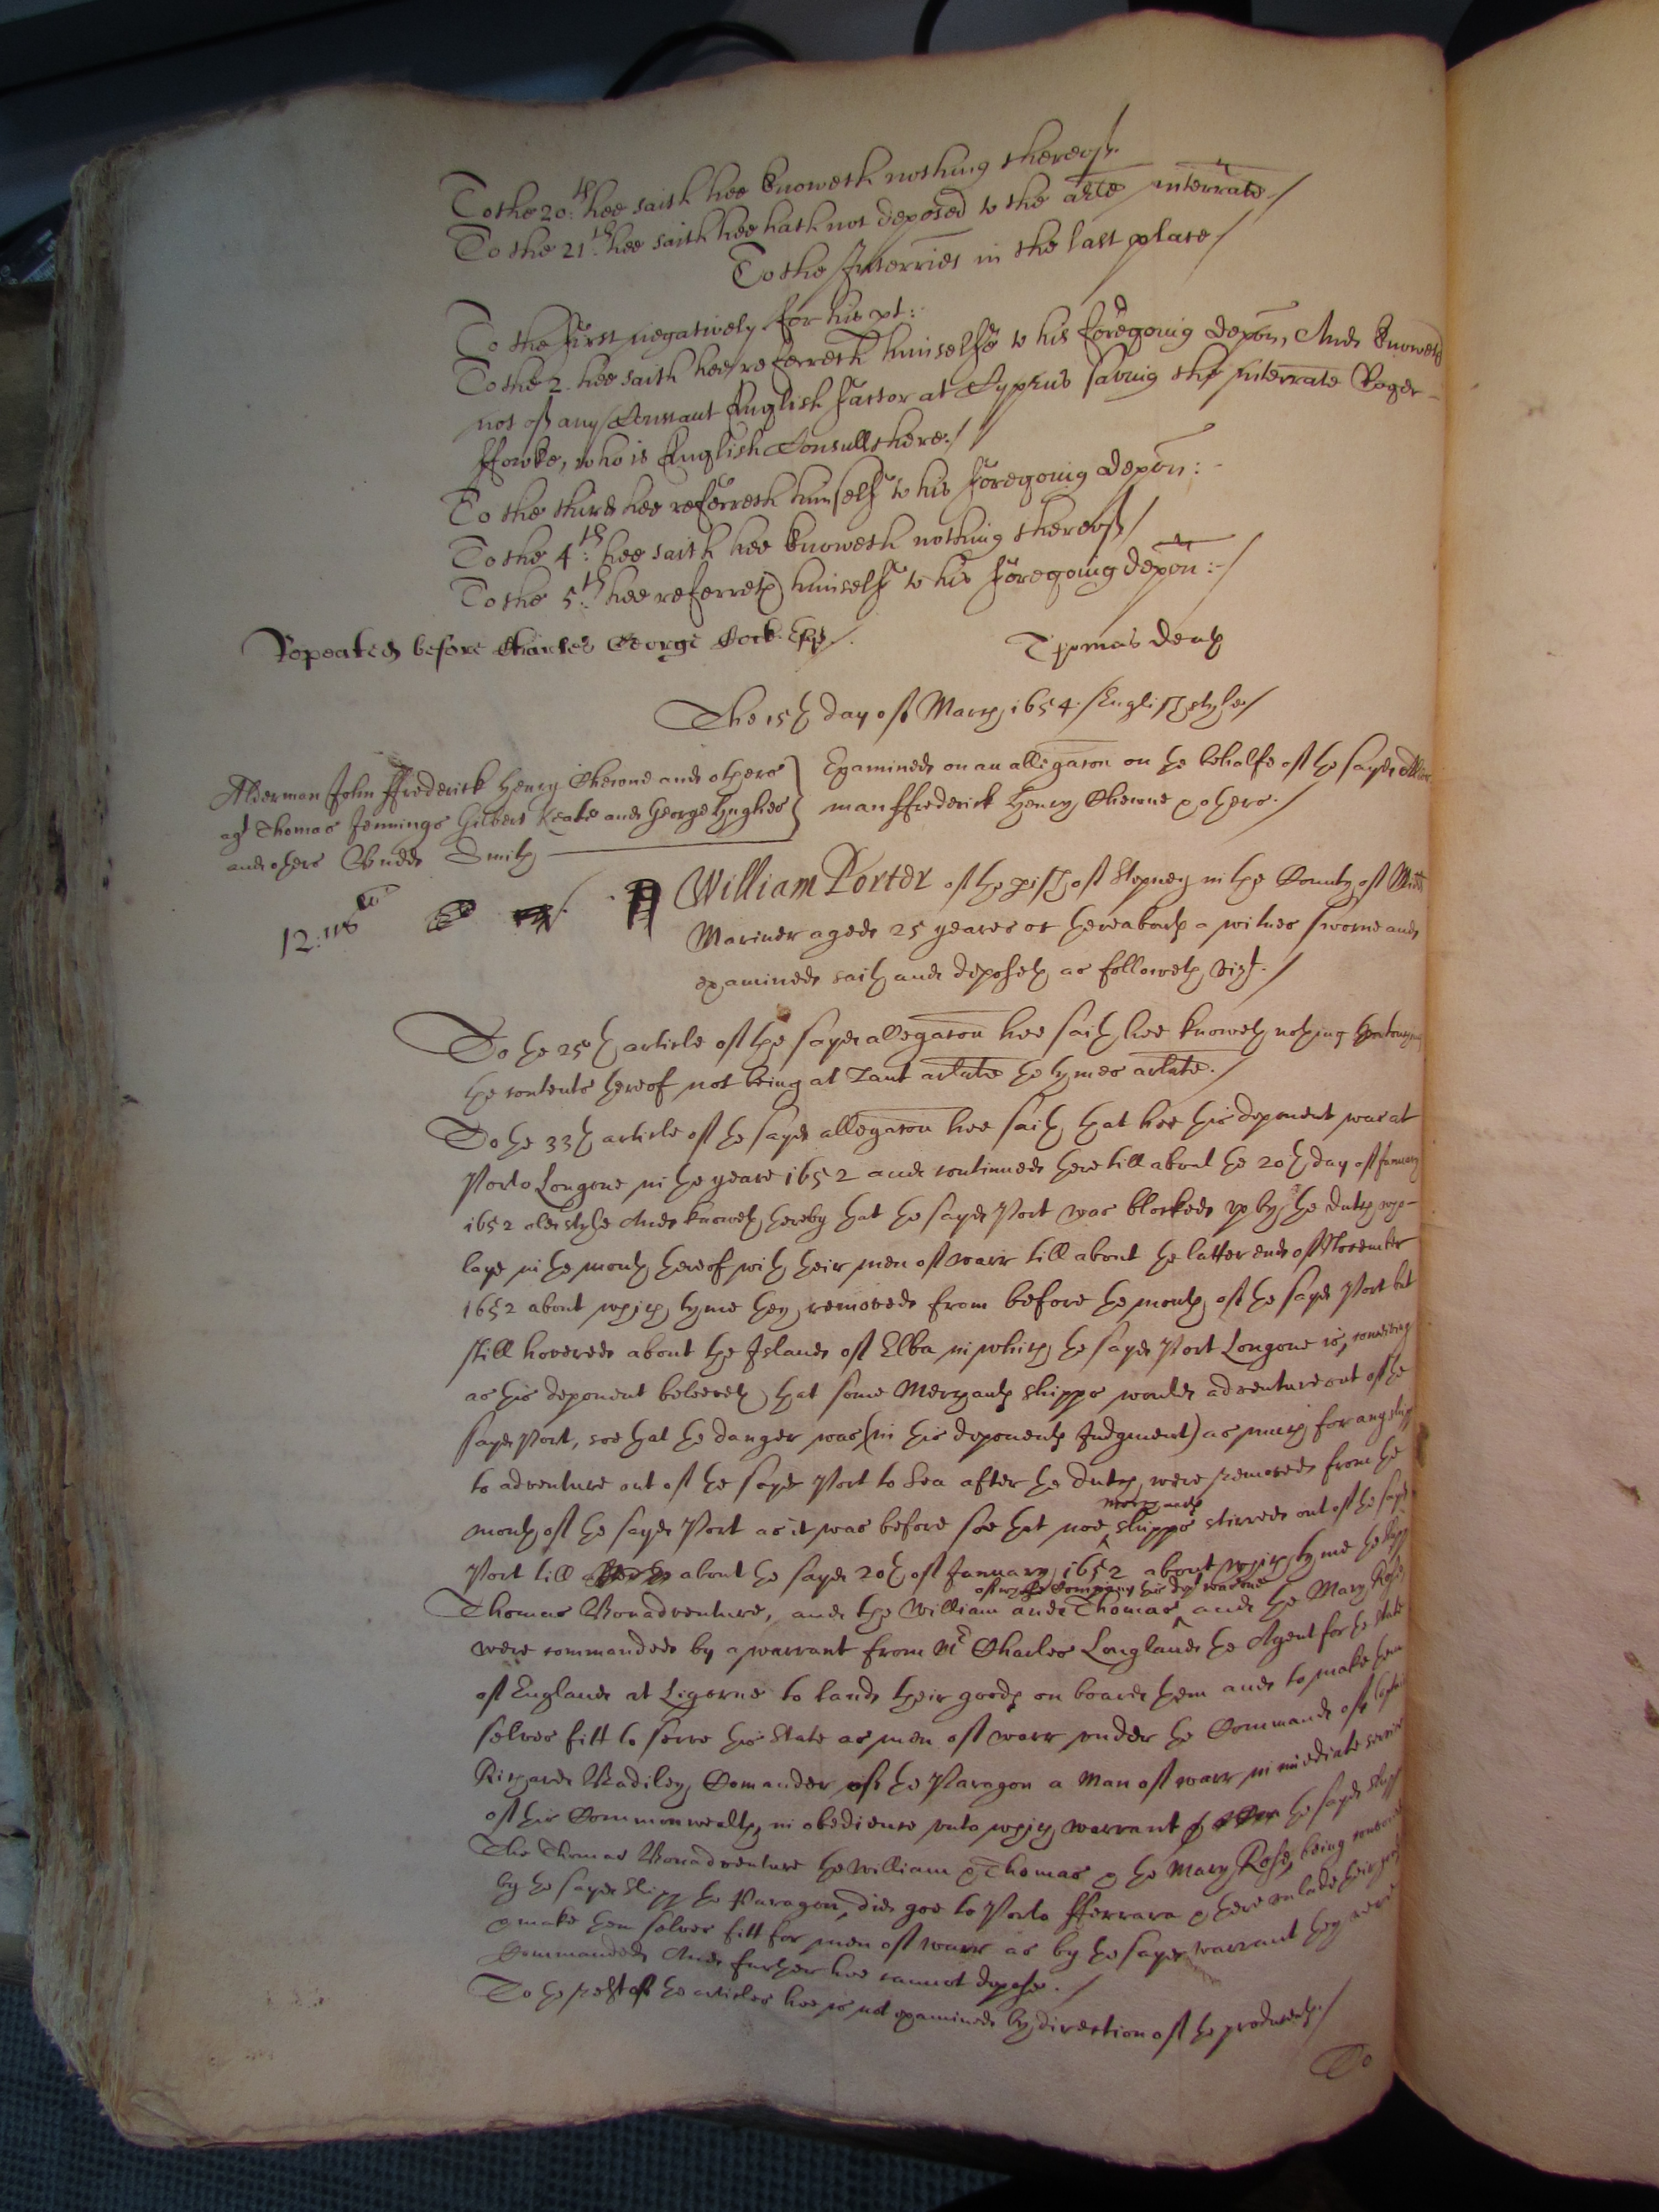 To the 20:th hee saith hee knoweth nothing thereof./
To the 21:th hee saith hee hath not deposed to the arle interrate./
To the Interries in the last place./
To the first negatively for his pt:
To the 2 hee saith hee referreth himselfe to his foregoing depon, And knoweth
not of any Constant English factor at Cyprus saving the interrate Roger
ffowke, who is English Consull there./
To the third hee referreth himself to his foregoing depon:-
To the 4th: hee saith hee knoweth nothing thereof/
To the 5th: hee referreth himself to his foregoing depon:-/
Repeated before Charles George Dock. Esqr./.
Thomas Death
The 15th day of March 1654. English style./
Alderman John ffrederick Henry Chewne and others
agt Thomas Jennings Gilbert Keate and George Hughes
and others Budd Smith
Examined on an allegacon on the behalfe of the sayd Alder
man ffrederick Henry Chewne & others./
12:us
William Porter of the pish of Stepney in the County of Midd
Mariner aged 25 yeares or thereabouts a witnes sworne and
examined saith and deposeth as followeth vizt./
To the 25th article of the sayd allegacon hee saith hee knoweth nothing touching
the contents thereof not being at Zant arlate the tymes arlate./
To the 33th article of the sayd allegacon hee saith that hee this deponent was at
Porto Longone in the yeare 1652 and continued there till about the 20th day of January
1652 old style And knoweth thereby that the sayd Port was blocked up by the dutch who
laye in the mouth thereof with their men of warr till about the latter end of November
1652 about which tyme they removed from before the mouth of the sayd Port but
still hovered about the Island of Elba in which the sayd Port Longone is, conceiving
as this deponent beleeveth that some Merchants shipps would adventure out of the
sayd Port, soe that the danger was (in this deponents Judgment) as much for any shipp
to adventure out of the sayd Port to Sea after the dutch were removed from the
mouth of the sayd Port as it was before soe that noe ^ merchants shipps stirred out of the sayd
Port till about the sayd 20th of January 1652 about which tyme the shipp
Thomas Bonadventure, and the William and Thomas ^ of wch the Company this dept was one and the Mary Rose
were commanded by a warrant from Mr Charles Longland the Agent for the State
of England at Ligorne to land their goods on board them and to make them
selves fitt to serve this State as men of warr under the Command of Captaine
Richard Badiley Comander of the Paragon a Man of warr in imediate service
of this Commonwealth, in obedience unto which warrant the sayd shipps
The Thomas Bonadventure the William & Thomas & the Mary Rose being convoied
by the sayd shipp the Paragon, did goe to Porto fferrara & there unlade their goods
& make them selves fitt for men of warr as by the sayd warrant they were
Commanded And further hee cannot depose./
To the rest of the articles hee is not examined by direction of the producents./
To